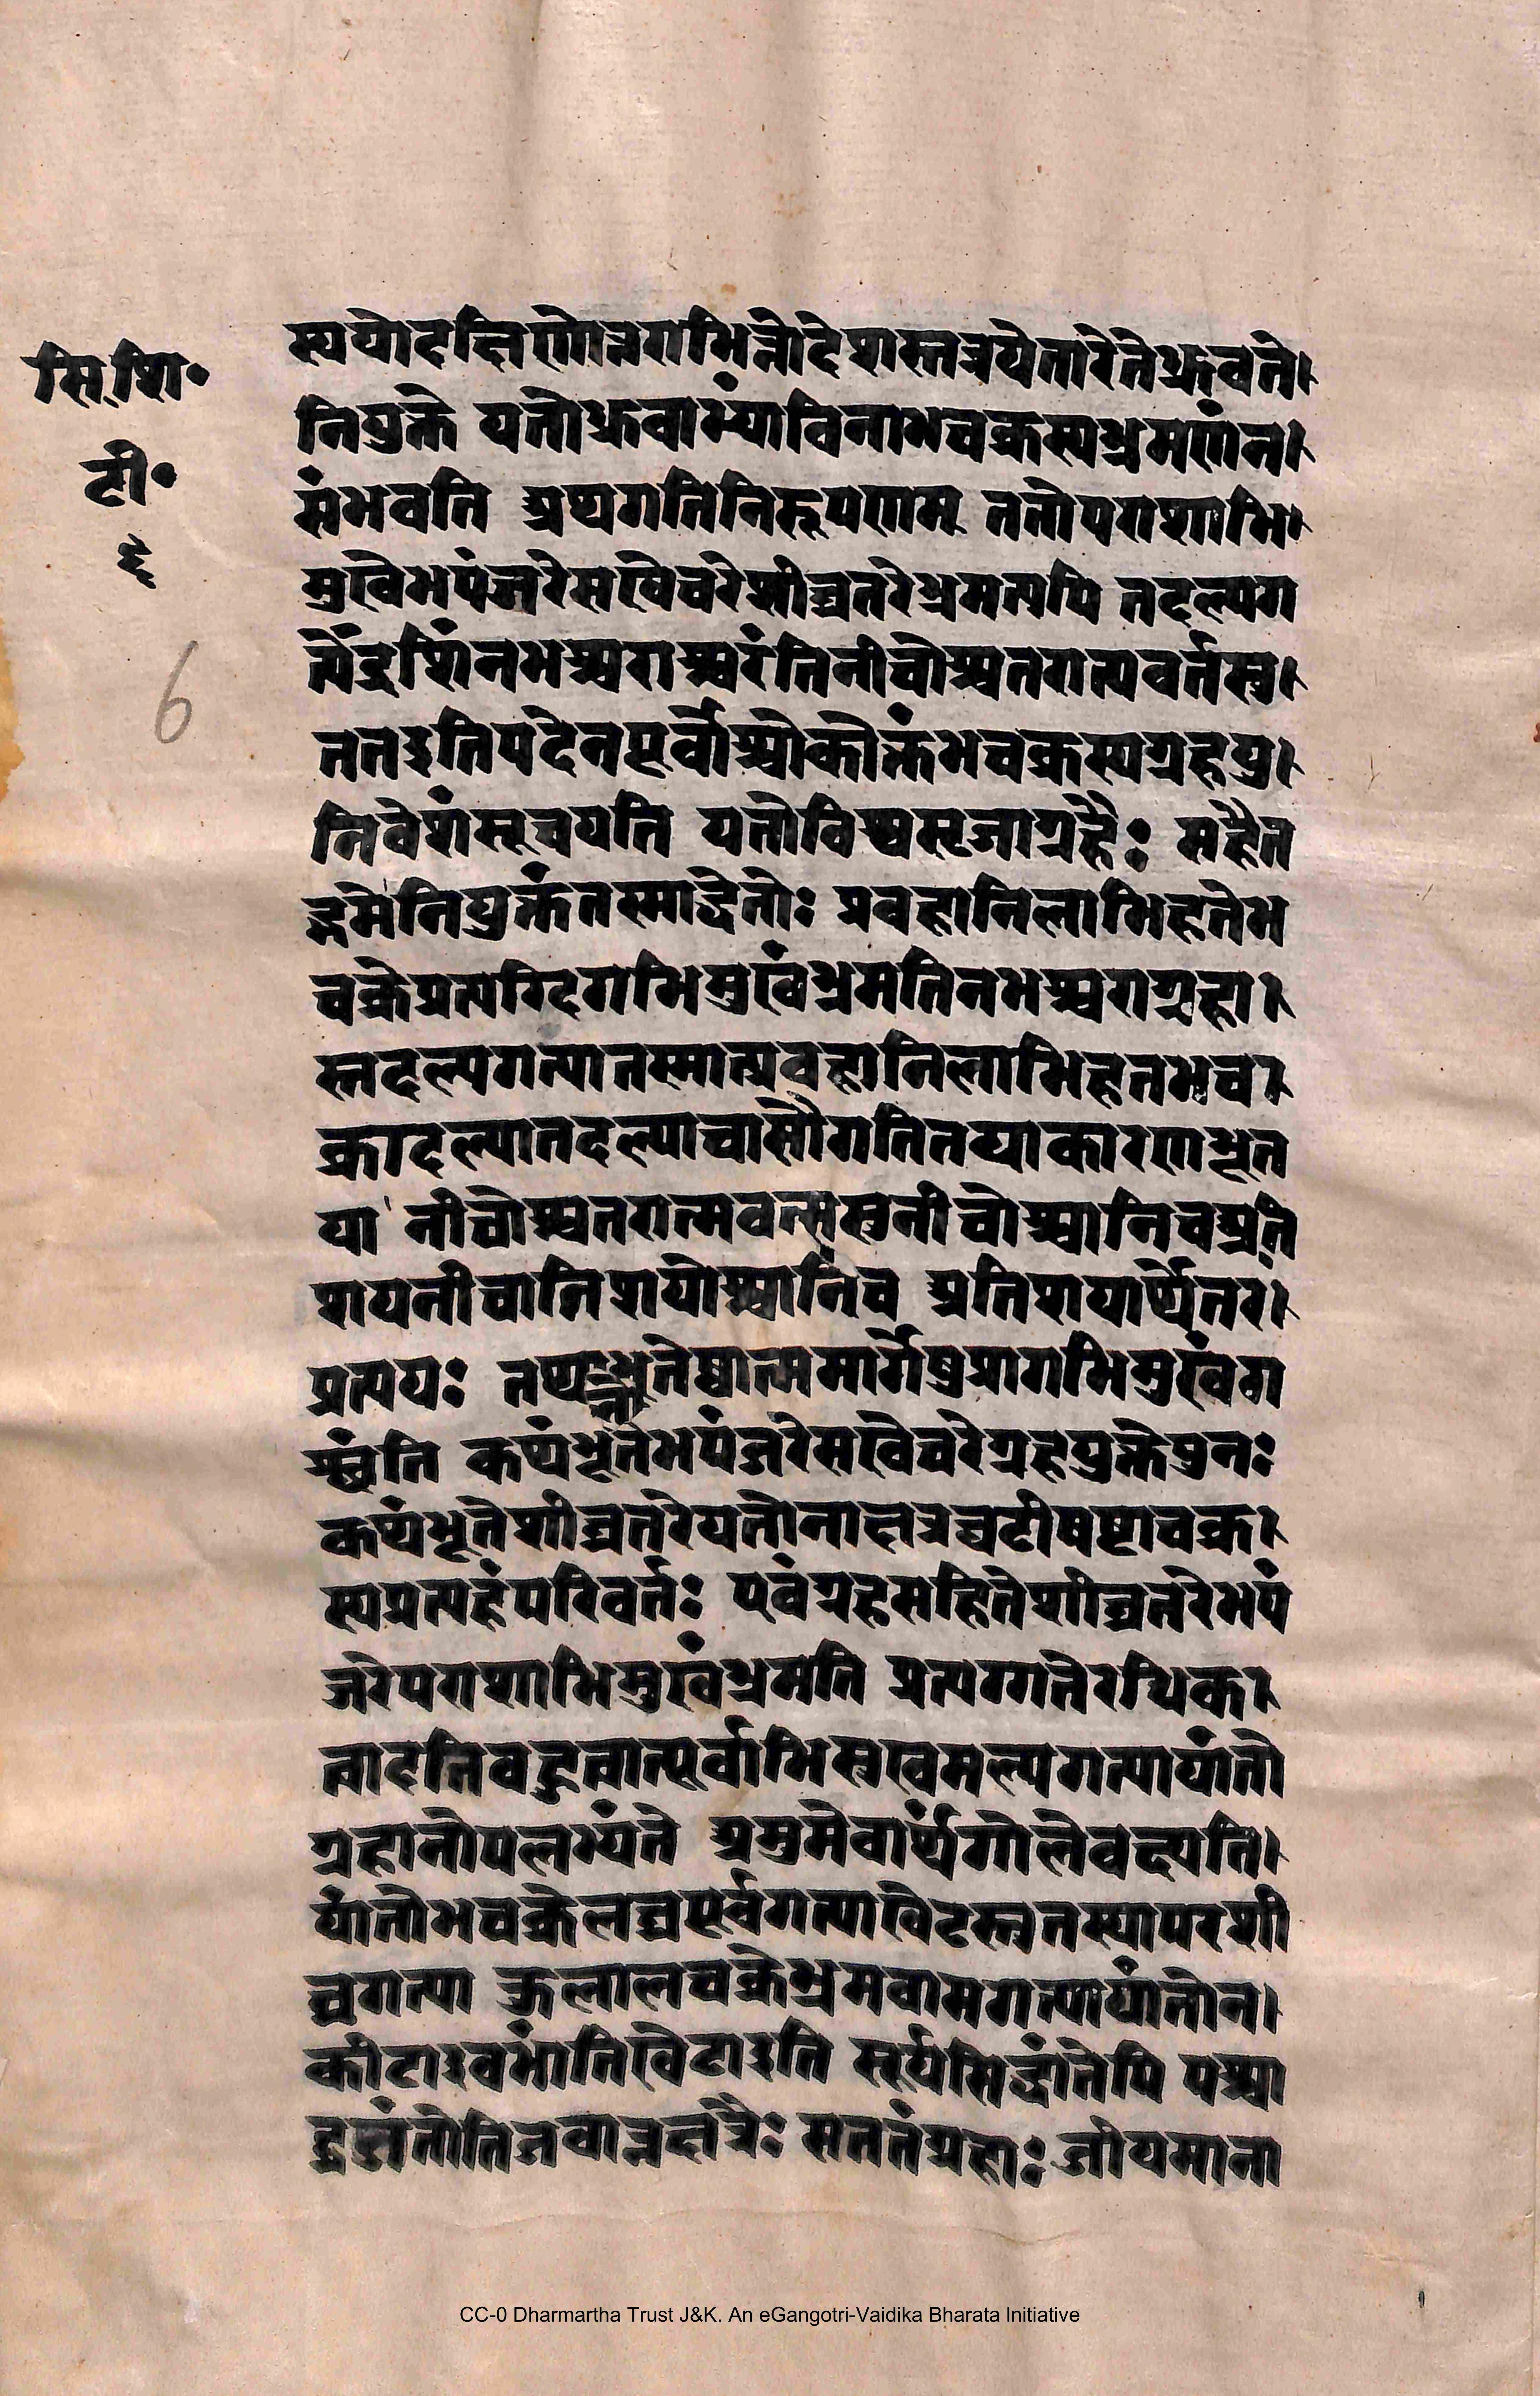 स्ययोदक्षिणोत्तराभिन्नोदेशस्तत्रयेतारेतेध्रुवते।
सि॰शि॰
नियुक्ते यतोध्रुवाभ्यांविनाभचक्रस्यभ्रमणंन।
टी॰
संभवति अथगतिनिरूपणम् ततोपराशाभि।
६
मुखेभपंजरेसखेचरेशीघ्रतरेभ्रमत्यपि तदल्पग
6
त्येंद्रदिशिंनभश्चराश्चरंतिनीचोच्चतरात्मवर्त्मसु।
ततइतिपदेनपूर्वोश्लोकोक्तंभचक्रस्यग्रहप्र।
निवेशंसूचयति यतोविश्वसृजाग्रहैः सहैत
द्भमेनियुक्तंतस्माद्धेतोः प्रवहानिलाभिहतेभ
चक्रेप्रत्यग्दिगभिमुखंभ्रमतिनभश्चराग्रहा।
स्तदल्पगत्यातस्मात्प्रवहानिलाभिहतभच।
क्रादल्पातदल्पाचासौगतितयाकारणभूत
या नीचोच्चतरात्मवर्त्मसुनीचोच्चानिचअति
शयनीचातिशयोच्चानिच अतिशयार्थेतर।
प्रत्ययः तथाभूतेष्वात्ममार्गेषुप्रागभिमुखंग
च्छंति कथंभूतेभपंजरेसखेचरेग्रहयुक्तेपुनः
कथंभूतेशीघ्रतरेयतोनाक्षत्रघटीषष्टाचक्र।
स्यप्रत्यहंपरिवर्तः एवंग्रहसहितेशीघ्रतरेभपं
जरेपराशाभिमुखंभ्रमति प्रत्यग्गतेरधिक।
त्वादतिबहुत्वात्पूर्वाभिमुखमल्पगत्यायांतो
ग्रहानोपलभ्यंते अमुमेवार्थंगोलेवक्ष्यति।
यांतोभचक्रेलघुपूर्वगत्याखेटास्तुतस्यापरशी
घ्रगत्या कुलालचक्रेभ्रमवामगत्यायांतोन।
कीटाइवभांतिखेटाइति सूर्यसिद्धांतेपि पश्चा
द्व्रजंतोतिजवान्नक्षत्रैः सततंग्रहाः जीयमाना
CC-0 Dharmartha Trust J&K. An eGangotri-Vaidika Bharata Initiative